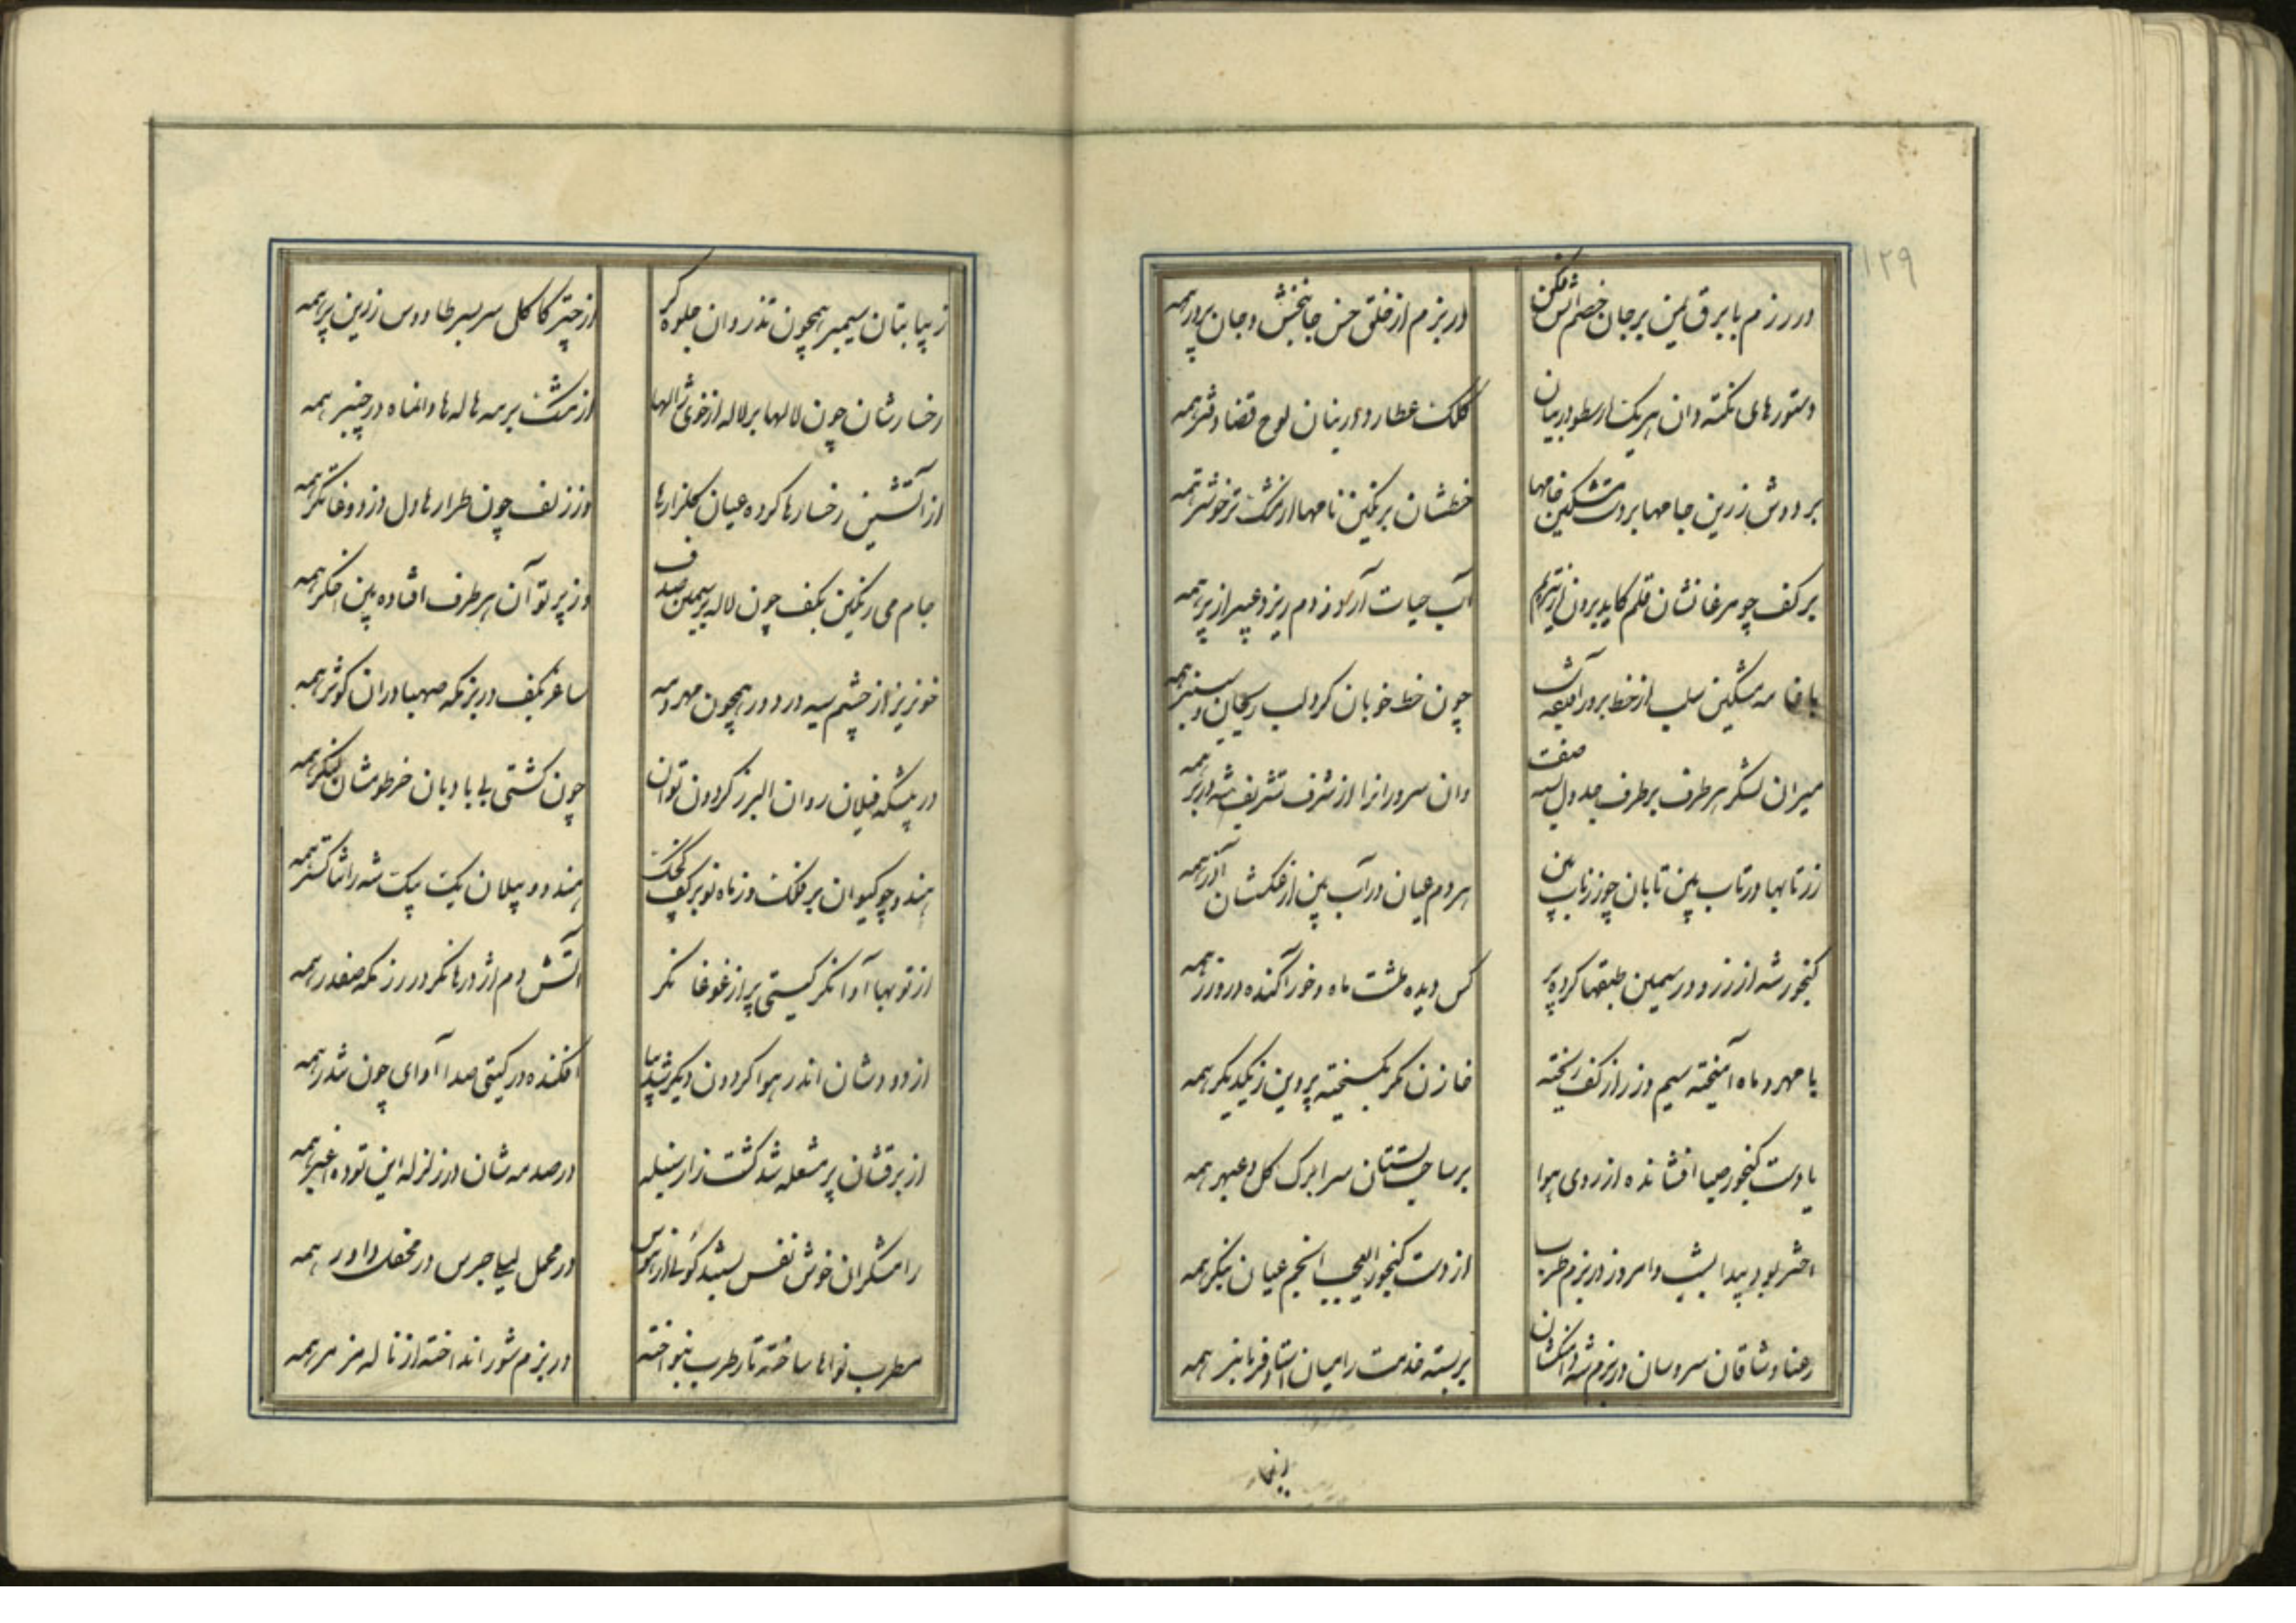 ۱۲۹
در رزم با برق یمن بر جان خصم آتش فکن
در بزم از خلق حسن جانبخش و جان پرور همه
دستورهای نکته دان هر یک ارسطو در بیان
کلک عطارد در بنان لوح قضا دفتر همه
بر دوش زرین جامها بر دست مشکین خامها
خطشان بر نگین نامها از مشک تر خوشتر همه
بر کف چو مرغانشان قلم کاید برون از
آب حیات آرد ز دم ریزد عبیر از پر همه
با خامه مشکین سلب از خط برو
چون خط خوبان کرد لب ریحان و سنبر همه
میران لشکر هر طرف بر طرف جدول بسته صف
وان سرورانرا از شرف تشریف شه در بر همه
زر تابها در تاب بین تابان چو زر ناب بین
هر دم عیان در آب بین از عکسشان آذر همه
کنجور شه از زر و در سیمین طبقها کرده پر
کس دیده طشت ماه و خور آکنده در و زر همه
با مهر و ماه آمیخته سیم و زر از کف ریخته
خازن مکر بگسیخته پروین ز یکدیگر همه
یا دست کنجور صبا افشانده از روی هوا
بر ساحت بستان سرا برک کل و عبهر همه
اختر بود پیدا بشب وامروز در بزم طرب
از دست کنجور العجب انجم عیان بنگر همه
رعنا وشاقان سروسان در بزم شه دامنکشان
بر بسته خدمت را میان استاده فرمانبر همه
زیبا
زیبا بتان سیمبر همچون تذروان جلوه کر
از چتر کاکل سر بسر طاووس زرین پر همه
رخسارشان چون لالها بر لاله از خوی ژالها
از مشک بر مه هاله ها وانماه در چنبر همه
از آتشین رخسارها کرده عیان گلزارها
وز زلف چون طرارها دل دزد و غاتگر همه
جام می رنگین بکف چون لاله بر سیمین صدف
وز پرتو آن هر طرف افتاده بین اخگر همه
خونریز از چشم سیه در دور همچون مهر و مه
ساغر بکف در بزمگه صهبا در آن کوثر همه
در پیشگه فیلان روان البرز کردون توان
چون کشتی بی بادبان خرطومشان لنگر همه
هندو چو کیوان بر فلک وز ماه نو بر کف کجک
هندو و پیلان یک بیک شه را ثناگستر همه
از توبها آوا نکر گیتی پر از غوغا نکر
آتش دم اژدرها نکر در رزمگه صفدر همه
از دودشان اندر هوا کردون دیکر شد بپا
افکنده در گیتی صدا آوای چون تندر همه
از برقشان پر مشعله شد کشت زار سنبله
در صدمه شان در زلزله این توده اغبر همه
رامشگران خوش نفس
در محمل لیلی جرس در محفل داور همه
مطرب نواها ساخته تار طرب بنواخته
در بزم شور انداخته از ناله مزمر همه